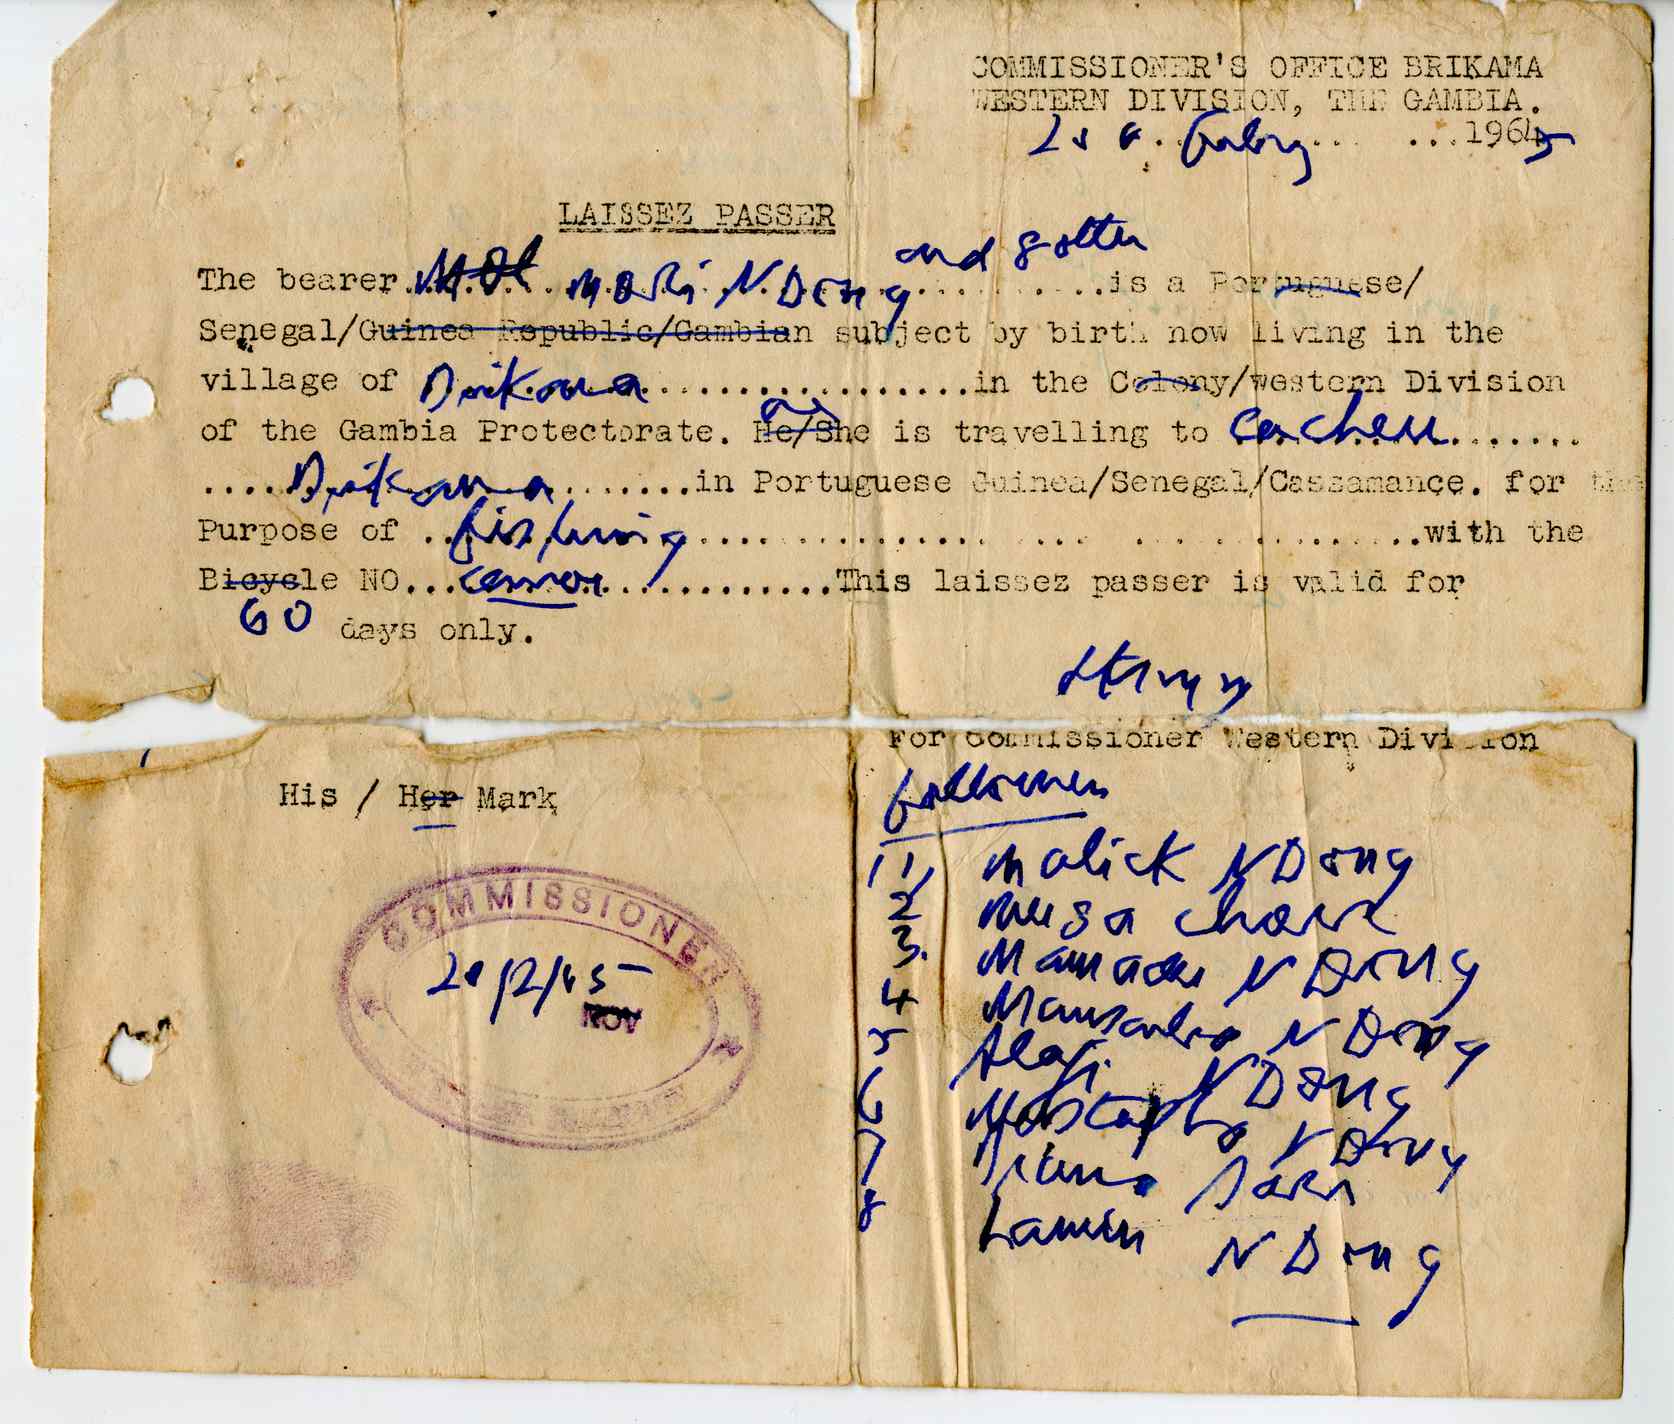 COMMISSIONER'S OFFICE BRIKAMA
WESTERN DIVISION, THE GAMBIA.
1965
LAISSEZ PASSER
and 8 other
The bearer Modi N Dong is a Portuguese/
Senegal/Guinea Republic/Gambian subject by birth now living in the
village of Brikama in the Colony/western Division
of the Gambia Protectorate. He/She is travelling to Cacheu
Brikama in Portuguese Guinea/Senegal/Cassamance. for the
Purpose of fishing with the
Bicycle NO... cannoe This laissez passer is valid for
60 days only.
For Commissioner Western Division
His / Her Mark
COMMISSIONER
20/2/65
NOV
followers
1, Malick N Dong
2 Musa
3. Mamadu N Dong
4 N Dong
5 Alagi N Dong
6 Mustapha N Dong
7
8 Lamin N Dong